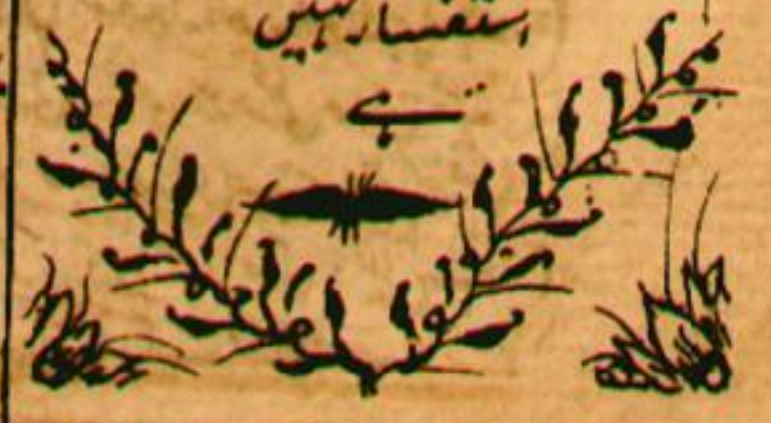 استفسار نہیں
ہے